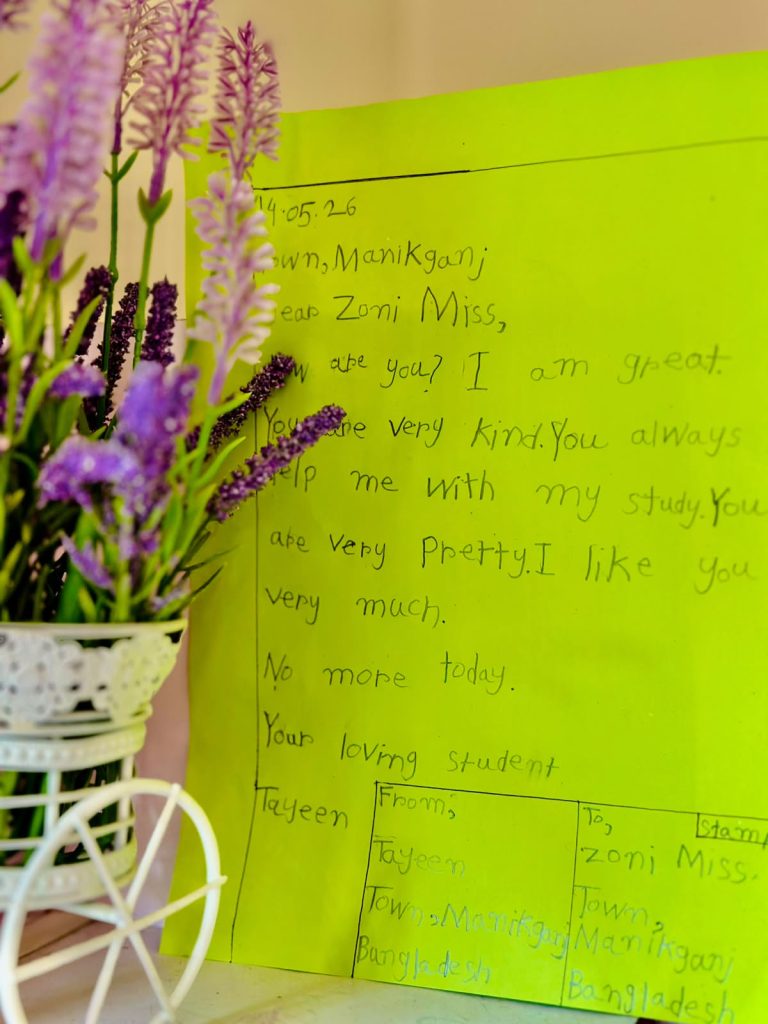 14.05.26
Town, Manikganj
Dear Zoni Miss,
How are you? I am great.
You are very kind. You always
help me with my study. You
are very pretty. I like you
very much.
No more today.
Your loving student
Tayeen
From,
Tayeen
Town, Manikganj
Bangladesh
To,
Stamp
Zoni Miss.
Town,
Manikganj
Bangladesh